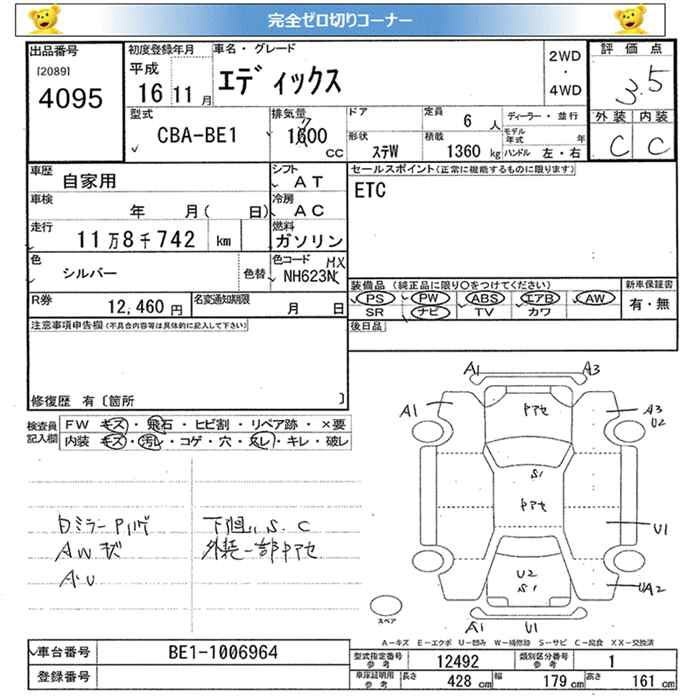 完全ゼロ切りコーナー
出品番号
[2089]
4095
初度登録年月
平成
16 11 月
車名・グレード
エディックス
2WD
・
4WD
評価点
3.5
外装 内装
C C
型式
CBA-BE1
排気量
1600
7
CC
ドア
定員
6 人
ディーラー・並行
形状
ステW
積載
1360 kg
モデル年式 年
ハンドル 左・右
車歴
自家用
シフト
AT
セールスポイント(正常に機能するものに限ります)
ETC
車検
年 月( 日)
冷房
AC
走行
11万8千742 km
燃料
ガソリン
色
シルバー
色替
色コード
MX
NH623N
装備品 (純正品に限り○をつけてください)
PS PW ABS エアB AW
SR ナビ TV カワ
新車保証書
有・無
R券
12,460 円
名変通知期限
月 日
後日品
注意事項申告欄(不具合内容等は具体的に記入して下さい)
修復歴 有〔箇所 〕
検査員記入欄
FW キズ・飛石・ヒビ割・リペア跡・×要
内装 キズ・汚レ・コゲ・穴・スレ・キレ・破レ
A1 A3
A1 A3
U2
S1
U1
U2
S1
UA2
A1 U1
スペア
AW状
A・U
下廻り S.C
A−キズ E−エクボ U−凹み W−補修跡 S−サビ C−腐食 XX−交換済
車台番号
BE1-1006964
登録番号
型式指定番号
参考
12492
類別区分番号
参考
1
車庫証明用
参考
長さ
428 cm
幅
179 cm
高さ
161 cm